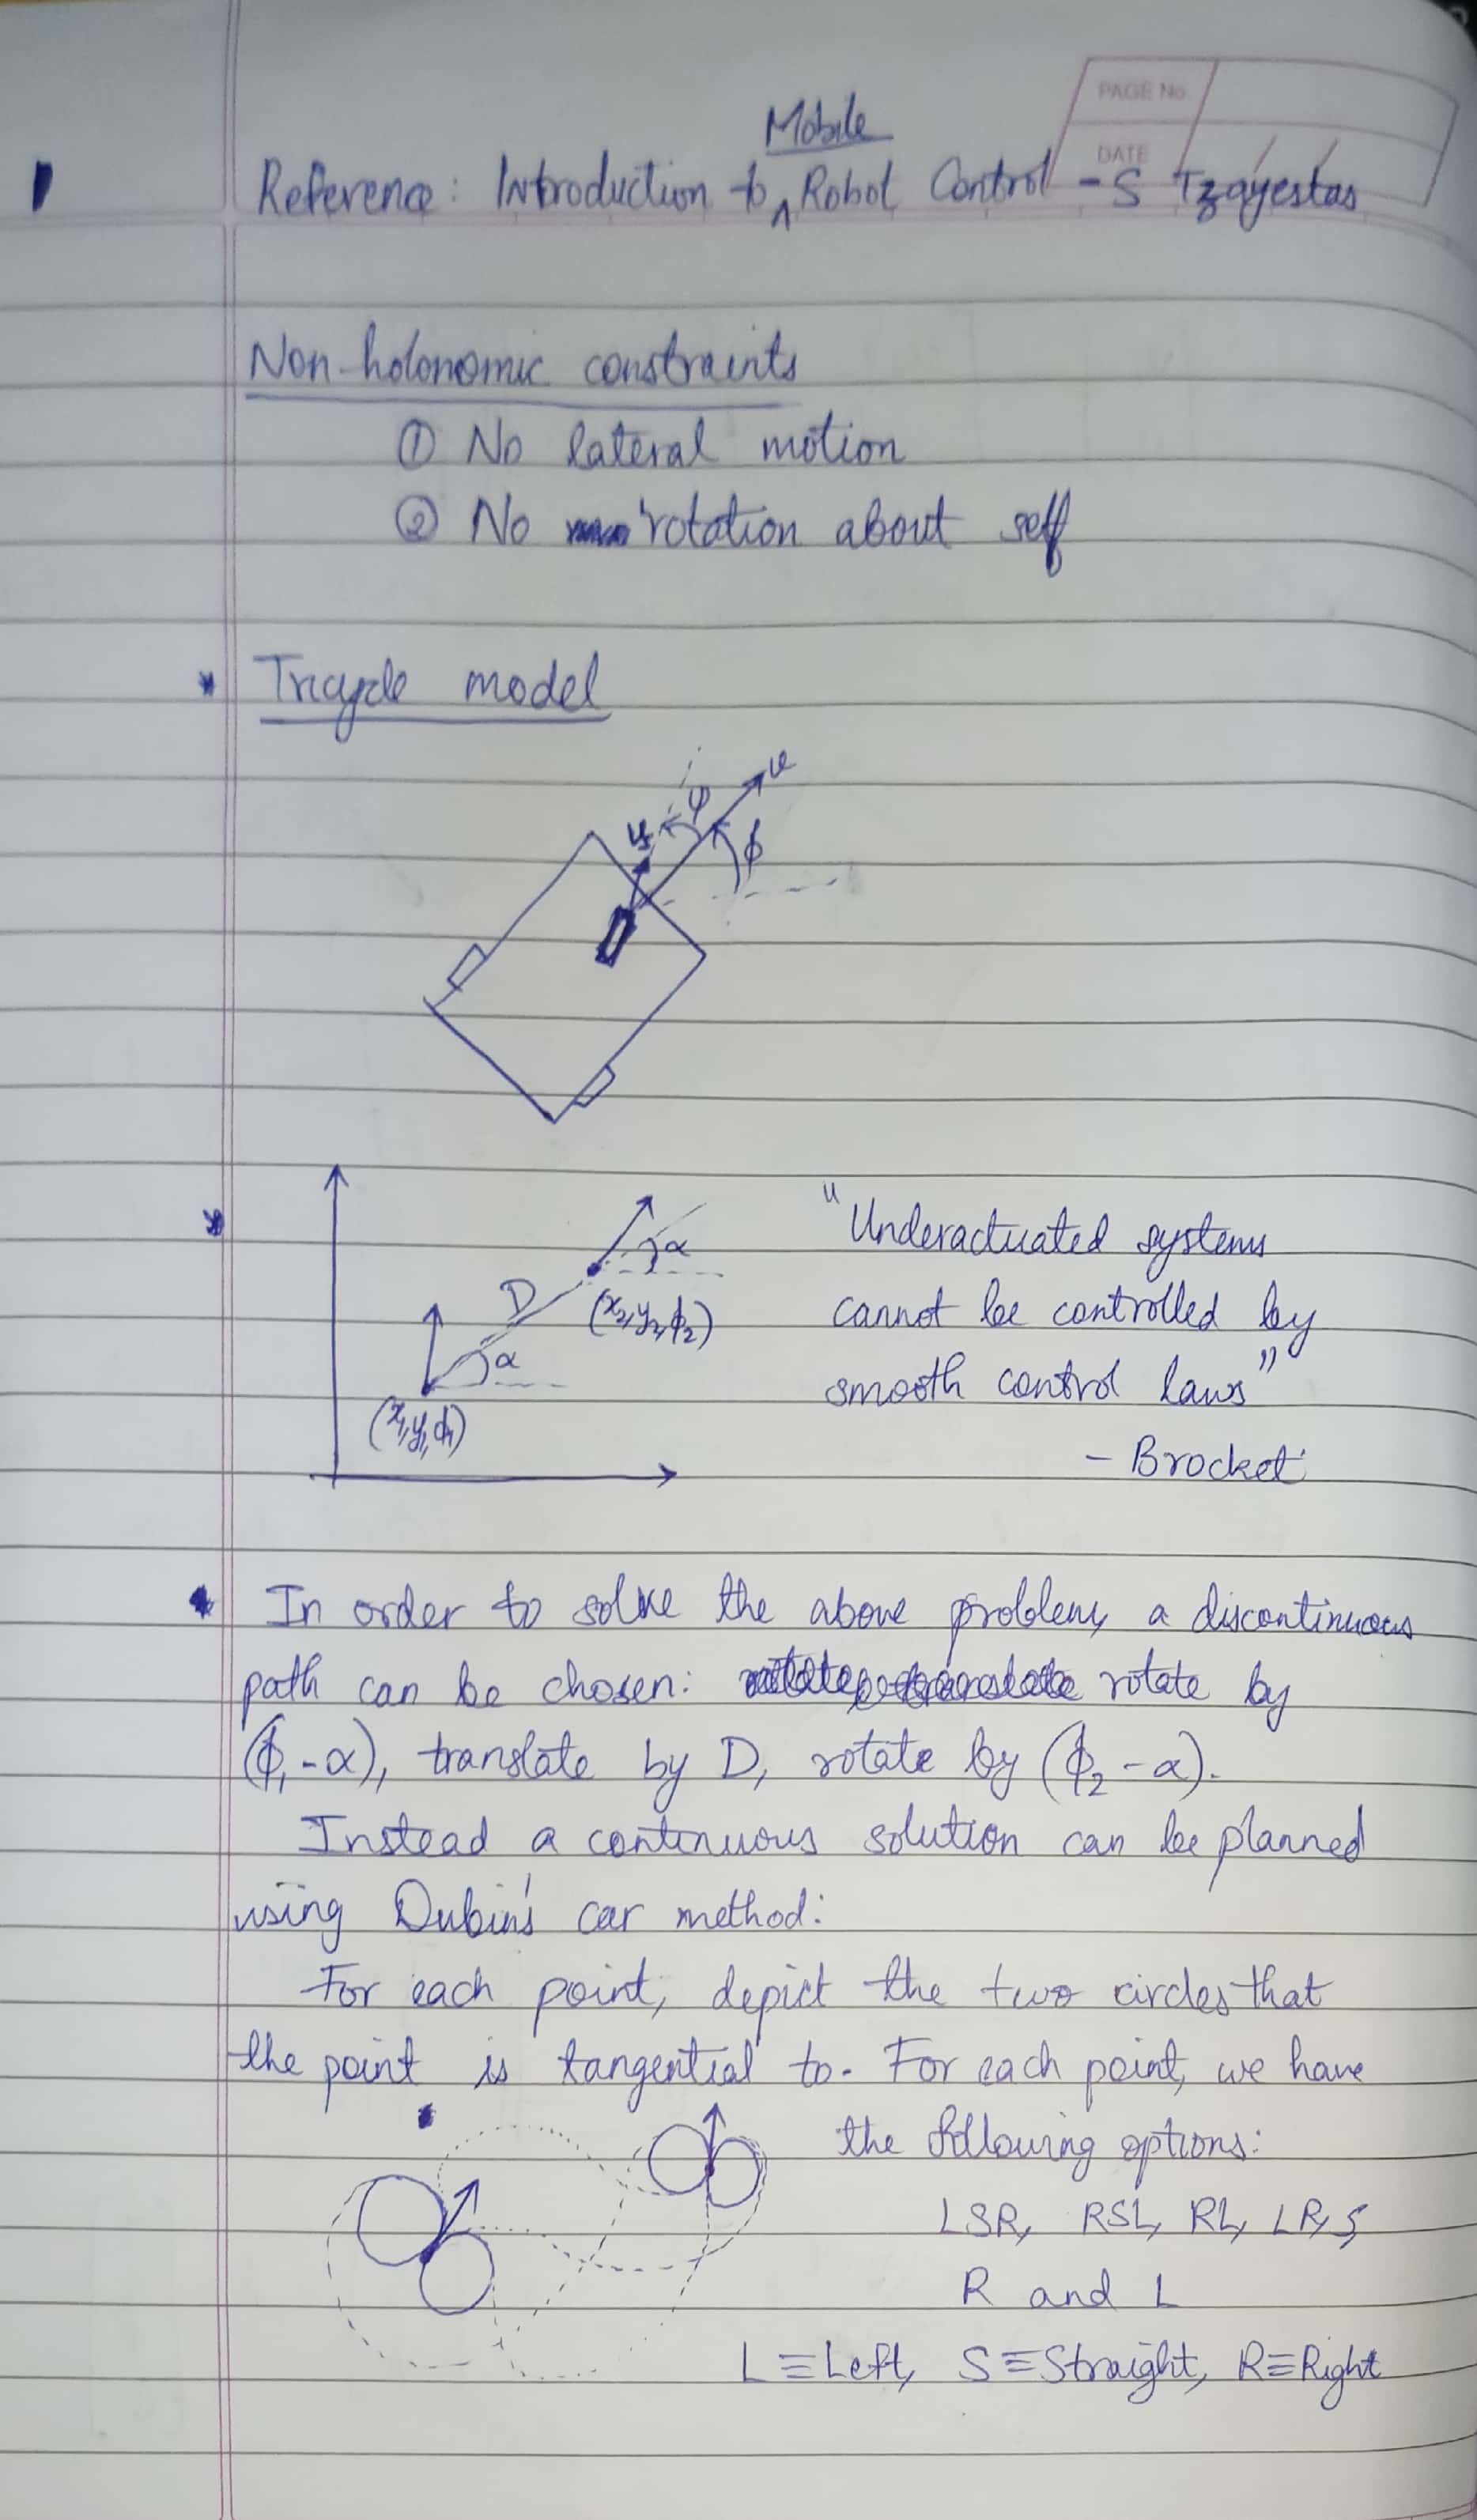 PAGE No.
DATE
Mobile
Reference: Introduction to ^ Robot Control - S Tzayestas
Non-holonomic constraints
① No lateral motion
② No rotation about self
* Tricycle model
v
ψ
ϕ
* D
α
α
(x₂,y₂,ϕ₂)
(x₁,y₁,ϕ₁)
"Underactuated systems
cannot be controlled by
smooth control laws"
- Brocket
* In order to solve the above problem, a discontinuous
path can be chosen: rotate by
(ϕ₁-α), translate by D, rotate by (ϕ₂-α).
Instead a continuous solution can be planned
using Dubin's car method:
For each point, depict the two circles that
the point is tangential to. For each point, we have
the following options:
LSR, RSL, RL, LR, S,
R and L
L≡Left, S≡Straight, R≡Right